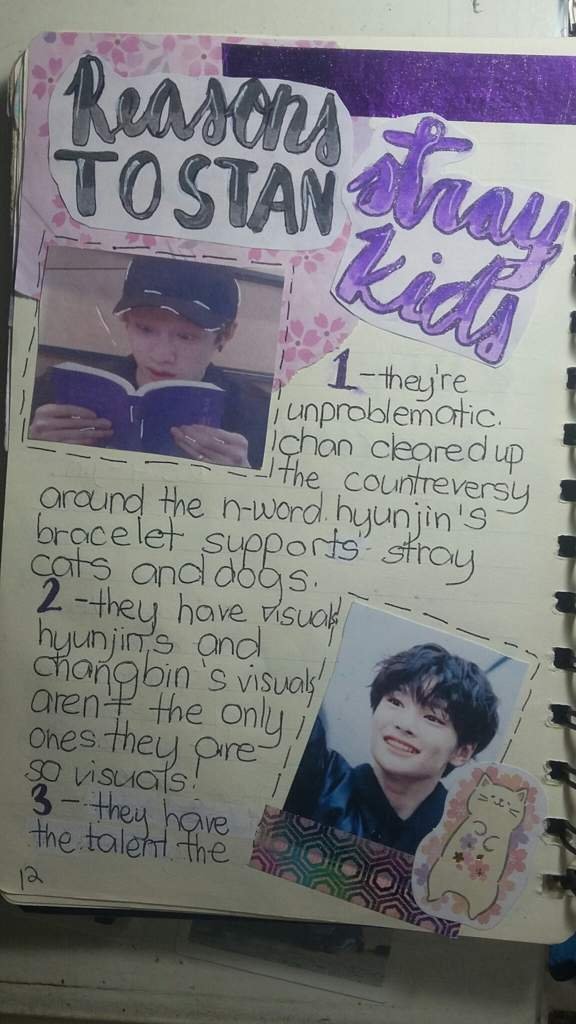 Reasons
TO STAN
stray
kids
1 - they're
unproblematic.
chan cleared up
the countreversy
around the n-word. hyunjin's
bracelet supports stray
cats and dogs.
2 - they have visuals
hyunjin's and
changbin's visuals
aren't the only
ones. they are
so visuals!
3 - they have
the talent. the
12